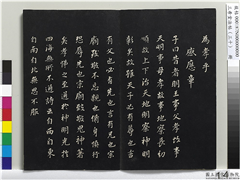 為孝乎
感應章
子曰昔者明王事父孝故事
天明事母孝故事地察長幼
順故上下治天地明察神明
彰矣故雖天子必有尊也言
有父也必有先也言有兄也宗
廟致敬不忘親也脩身慎行
恐辱先也宗廟致敬鬼神著
矣孝悌之至通於神明光於
四海無所不通詩云自西自東
自南自北無思不服